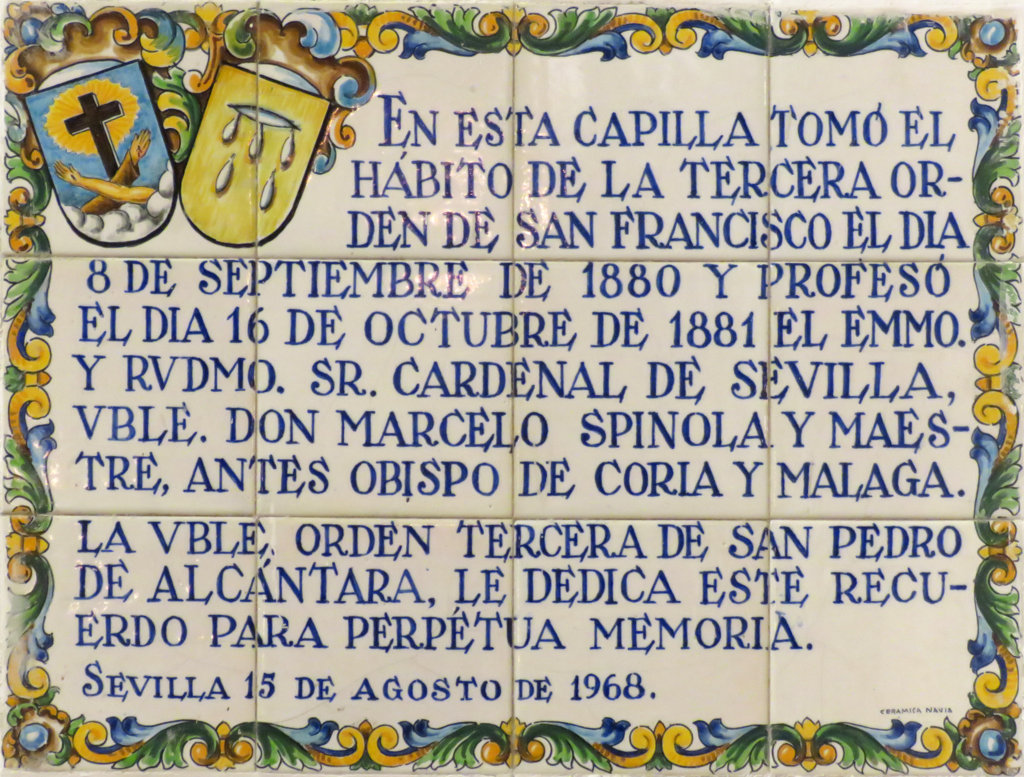 EN ESTA CAPILLA TOMÓ EL
HÁBITO DE LA TERCERA OR-
DEN DE SAN FRANCISCO EL DIA
8 DE SEPTIEMBRE DE 1880 Y PROFESÓ
EL DIA 16 DE OCTUBRE DE 1881 EL EMMO.
Y RVDMO. SR. CARDENAL DE SEVILLA,
VBLE. DON MARCELO SPINOLA Y MAES-
TRE, ANTES OBISPO DE CORIA Y MALAGA.
LA VBLE. ORDEN TERCERA DE SAN PEDRO
DE ALCÁNTARA, LE DEDICA ESTE RECU-
ERDO PARA PERPÉTUA MEMORIA.
SEVILLA 15 DE AGOSTO DE 1968.
CERAMICA NAVIA